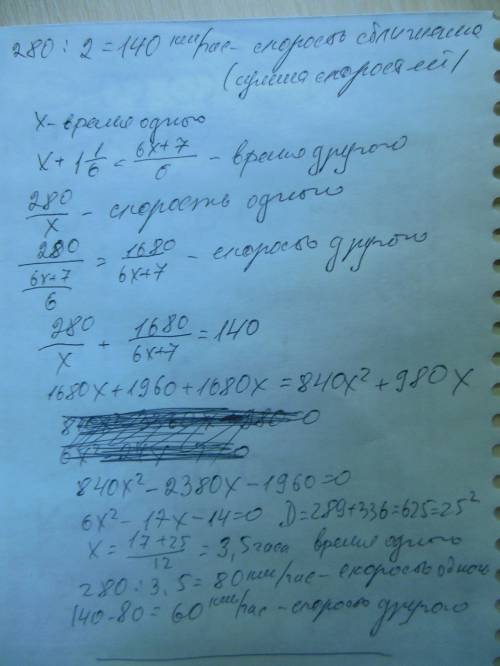 280 : 2 = 140 км/час - скорость сближения
(сумма скоростей)
x - время одного
x + 1 1/6 = (6x+7)/6 - время другого
280/x - скорость одного
280/((6x+7)/6) = 1680/(6x+7) - скорость другого
280/x + 1680/(6x+7) = 140
1680x + 1960 + 1680x = 840x² + 980x
840x² - 2380x - 1960 = 0
6x² - 17x - 14 = 0 D = 289 + 336 = 625 = 25²
x = (17 + 25)/12 = 3,5 часа время одного
280 : 3,5 = 80 км/час - скорость одного
140 - 80 = 60 км/час - скорость другого